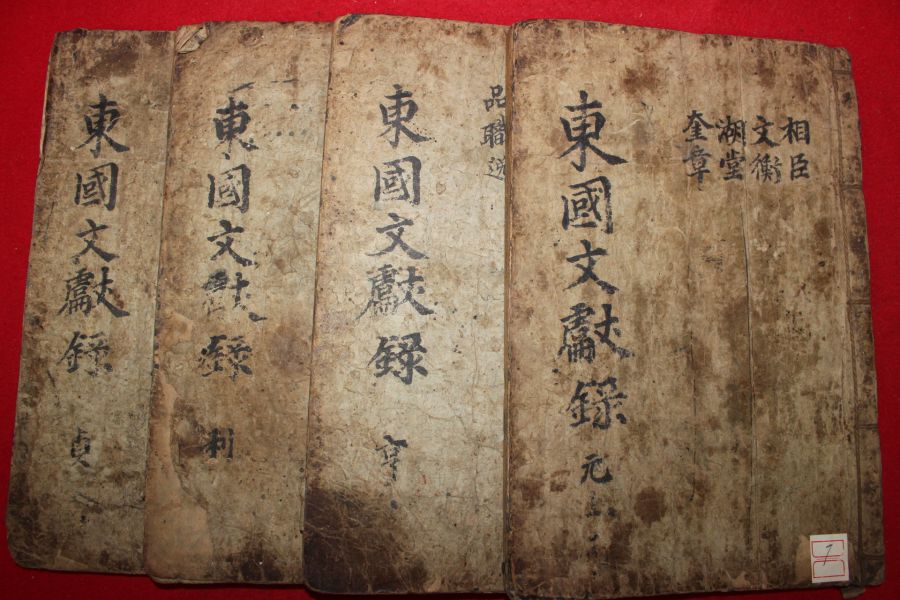 相臣
文衡
湖堂
奎章
東國文獻錄 元
品職
東國文獻錄 亨
東國文獻錄 利
東國文獻錄 貞